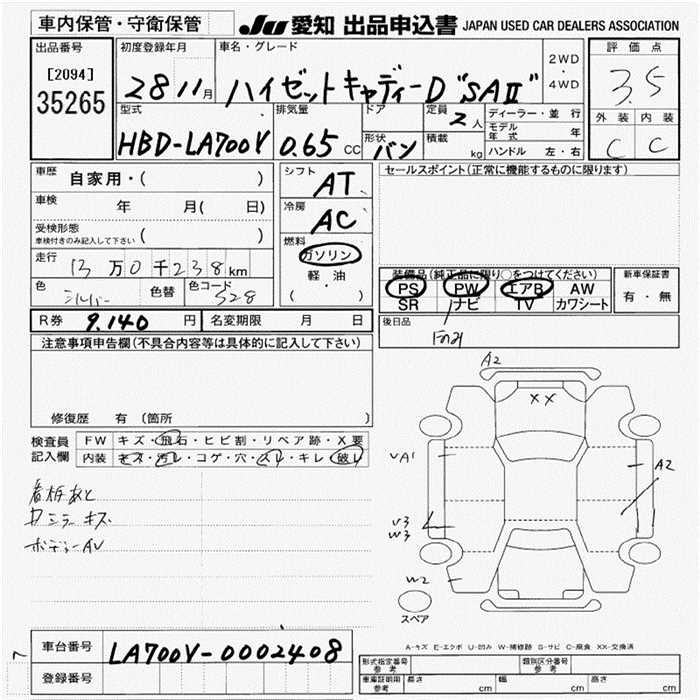 車内保管・守衛保管
JU 愛知 出品申込書 JAPAN USED CAR DEALERS ASSOCIATION
出品番号
[2094]
35265
初度登録年月
28 11月
車名・グレード
ハイゼットキャディーD "SAII"
2WD
・
4WD
評価点
3.5
外装 内装
C C
型式
HBD-LA700V
排気量
0.65 CC
ドア
形状
バン
定員
2人
積載
kg
ディーラー・並行
モデル年式 年
ハンドル 左・右
車歴 自家用・( )
車検 年 月( 日)
受検形態
車検付きのみ記入して下さい ( )
走行 13万0千238km
色 シルバー 色替 色コード S28
シフト
AT
冷房
AC
燃料
ガソリン
軽・油
( )
セールスポイント(正常に機能するものに限ります)
装備品(純正品に限り○をつけてください)
PS PW エアB AW
SR ナビ TV カワシート
新車保証書
有・無
R券 9.140 円 名変期限 月 日
後日品
注意事項申告欄(不具合内容等は具体的に記入して下さい)
修復歴 有(箇所 )
検査員記入欄
FW キズ・飛石・ヒビ割・リペア跡・X要
内装 キズ・汚レ・コゲ・穴・スレ・キレ・破レ
看板あと
カミラーキズ
ボディーAU
A2
XX
UA1
A2
U3
W3
W2
スペア
A-キズ E-エクボ U-凹み W-補修跡 S-サビ C-腐食 XX-交換済
車台番号 LA700V-0002408
登録番号
形式指定番号
参考
類別区分番号
参考
車庫証明用
参考
長さ cm 幅 cm 高さ cm